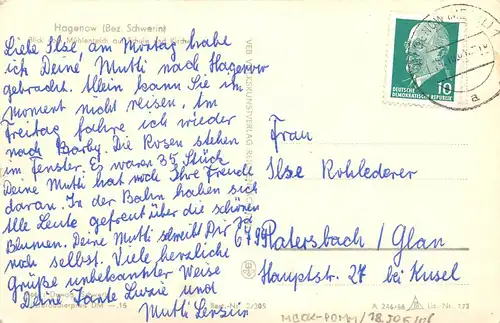 Hagenow (Bez. Schwerin)
Liebe Ilse, am Montag habe
ich Deine Mutti nach Hagenow
gebracht. Allein kann Sie im
Moment nicht reisen. Im
Freitag fahre ich wieder
nach Barby. Die Rosen stehen
im Fenster. Es waren 35 Stück
Deine Mutti hat noch Ihre Freude
daran. In der Bahn haben sich
Alle Leute gefreut über die schönen
Blumen. Deine Mutti schreibt Dir ja
noch selbst. Viele herzliche
Grüße unbekannter Weise
Deine Tante Luzie und
Mutti
VEB VOLKSKUNSTVERLAG
DEUTSCHE
DEMOKRATISCHE REPUBLIK
10
a
Frau
Ilse Kohlederer
6799
Patersbach / Glan
Hauptstr. 27 bei Kusel